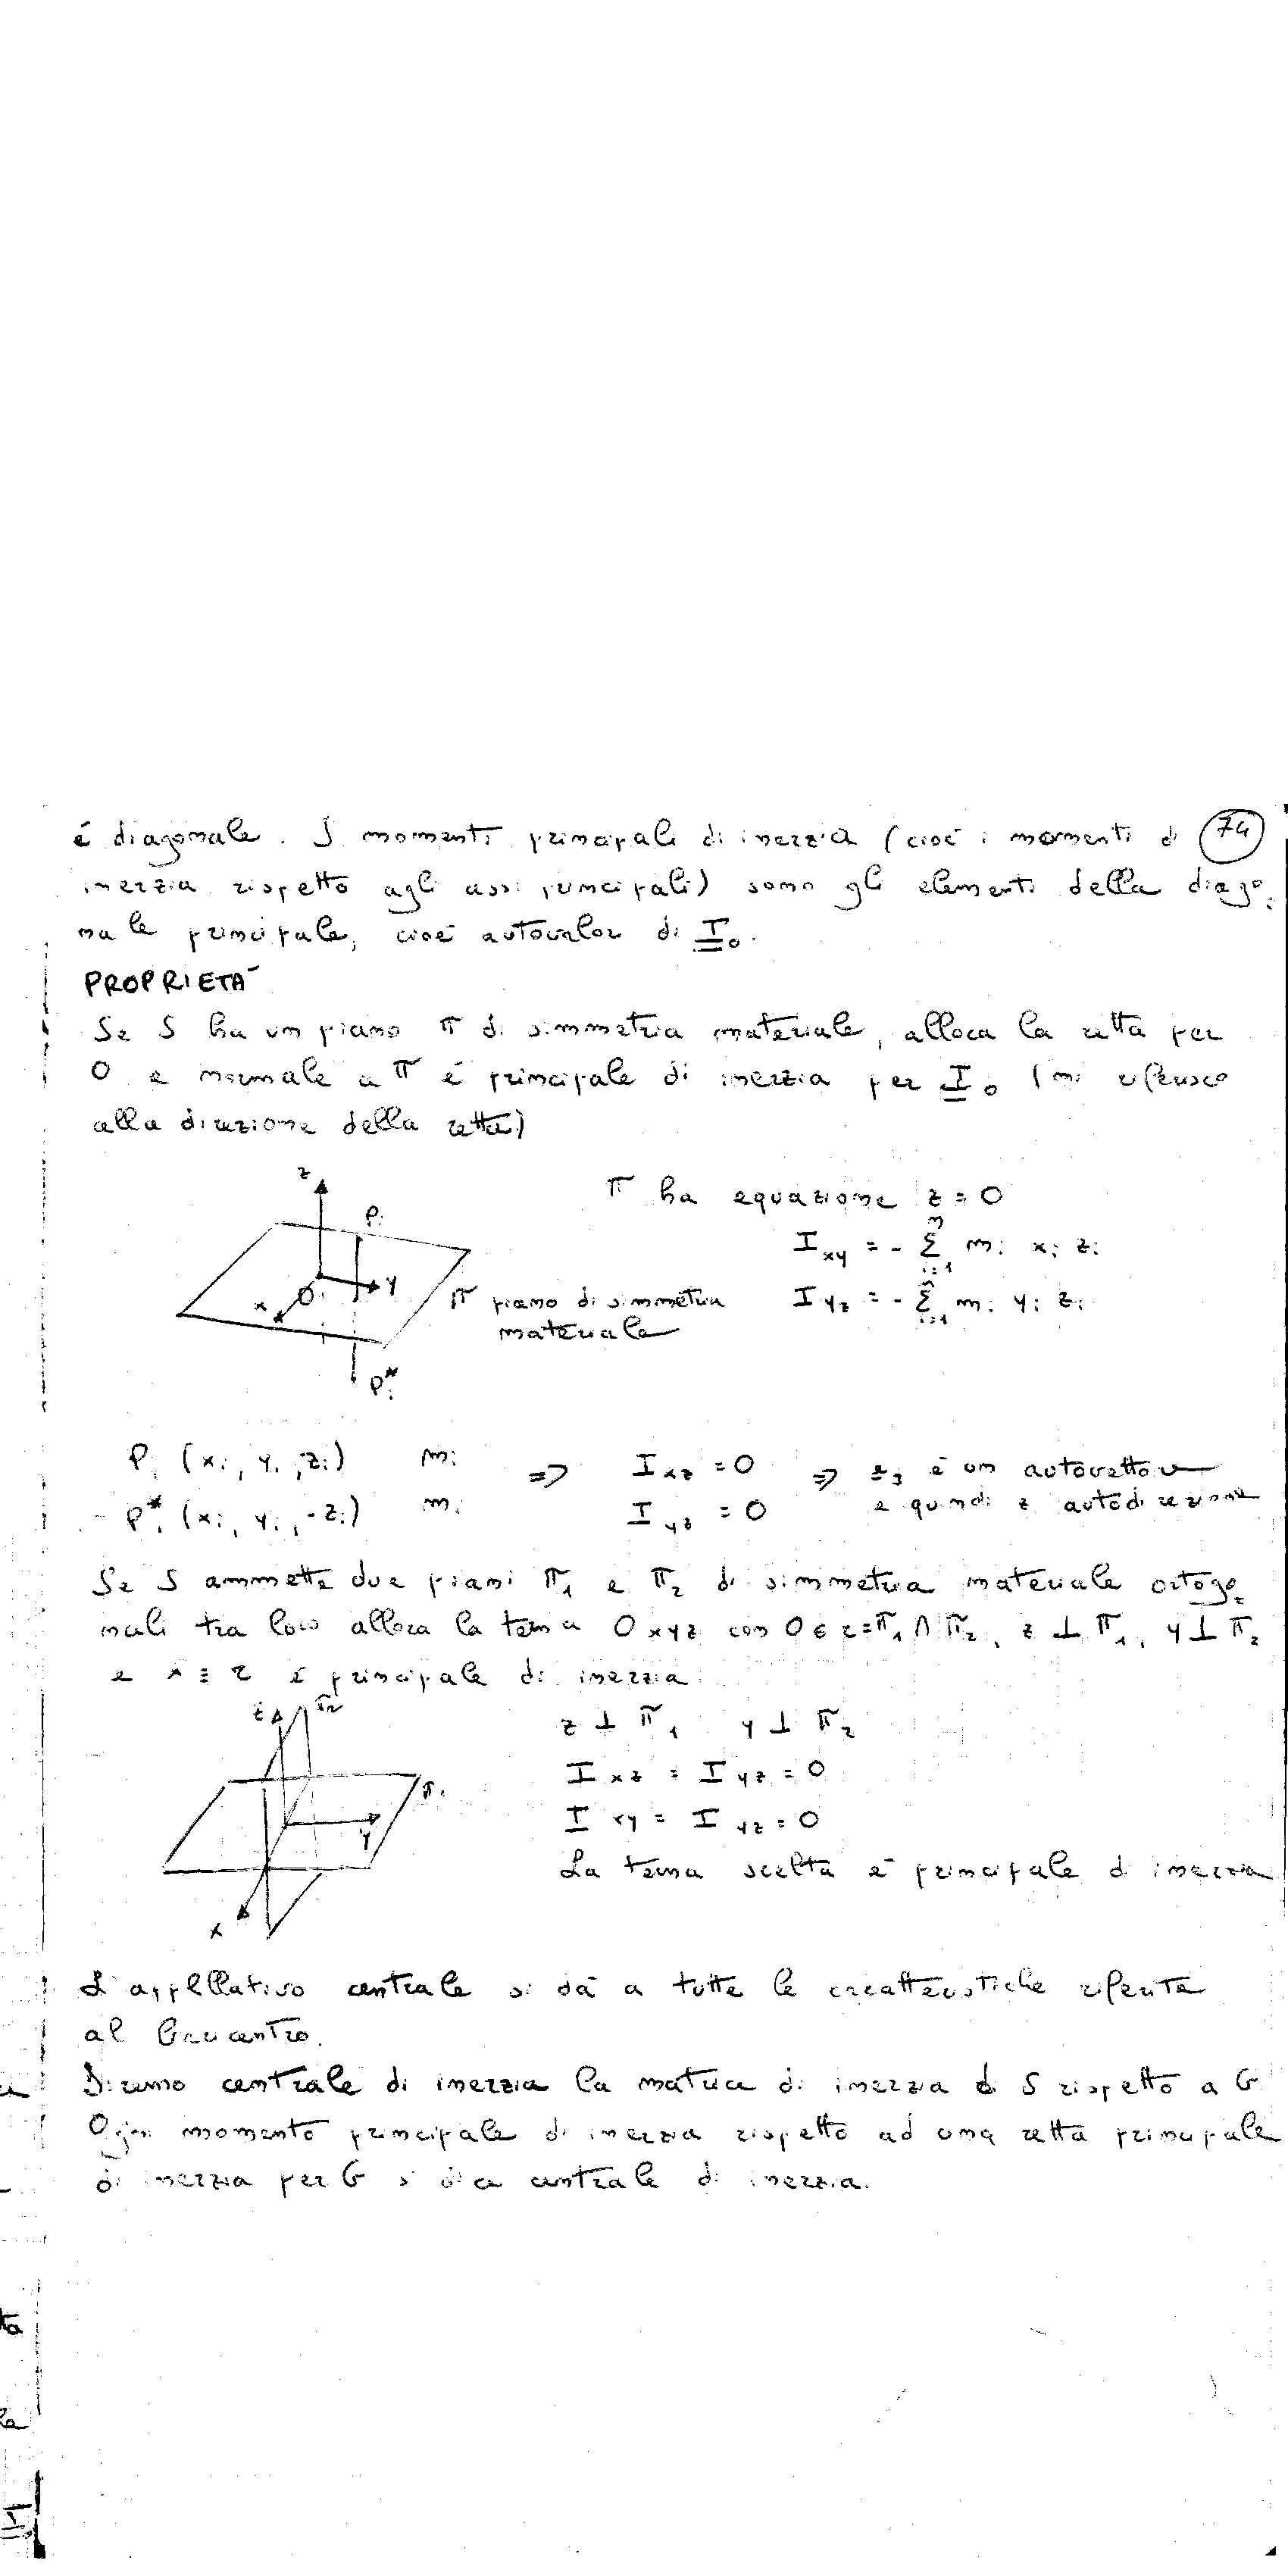 é diagonale. I momenti principali di inerzia (cioé i momenti di 74
inerzia rispetto agli assi principali) sono gli elementi della diago=
nale principale, cioé autovalori di I₀.
PROPRIETÁ
Se S ha un piano π di simmetria materiale, allora la retta per
O e normale a π é principale di inerzia per I₀ (mi riferisco
alla direzione della retta)
z
Pi
π ha equazione z = 0
Ixy = - Σ mi xi zi
n
i=1
O
x
y
π piano di simmetria
materiale
Iyz = - Σ mi yi zi
n
i=1
Pi*
Pi (xi, yi, zi) mi ⇒ Ixz = 0 ⇒ e₃ é un autovettore
Pi* (xi, yi, -zi) mi Iyz = 0 e quindi z autodirezione
Se S ammette due piani π₁ e π₂ di simmetria materiale ortogo=
nali tra loro allora la terna Oxyz con O ∈ r = π₁ ∩ π₂, z ⊥ π₁, y ⊥ π₂
e x ≡ r é principale di inerzia
z π₂
z ⊥ π₁ y ⊥ π₂
Ixz = Iyz = 0
π₁
Ixy = Iyz = 0
y
La terna scelta é principale di inerzia
x
L'appllativo centrale si dá a tutte le creatteristiche riferite
al baricentro.
Diremo centrale di inerzia la matrice di inerzia di S rispetto a G
Ogni momento principale di inerzia rispetto ad una retta principale
di inerzia per G si dice centrale di inerzia.
ta
la